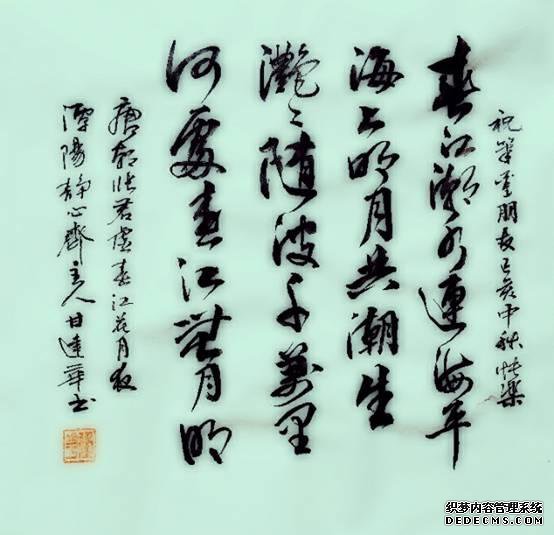 祝筆重朋友己亥中秋快樂
春江潮水連海平
海上明月共潮生
灔〻隨波千萬里
何處春江無月明
唐 張若虛春江花月夜
潭陽靜心齋主人甘達華书
织梦内容管理系统
DEDECMS.COM